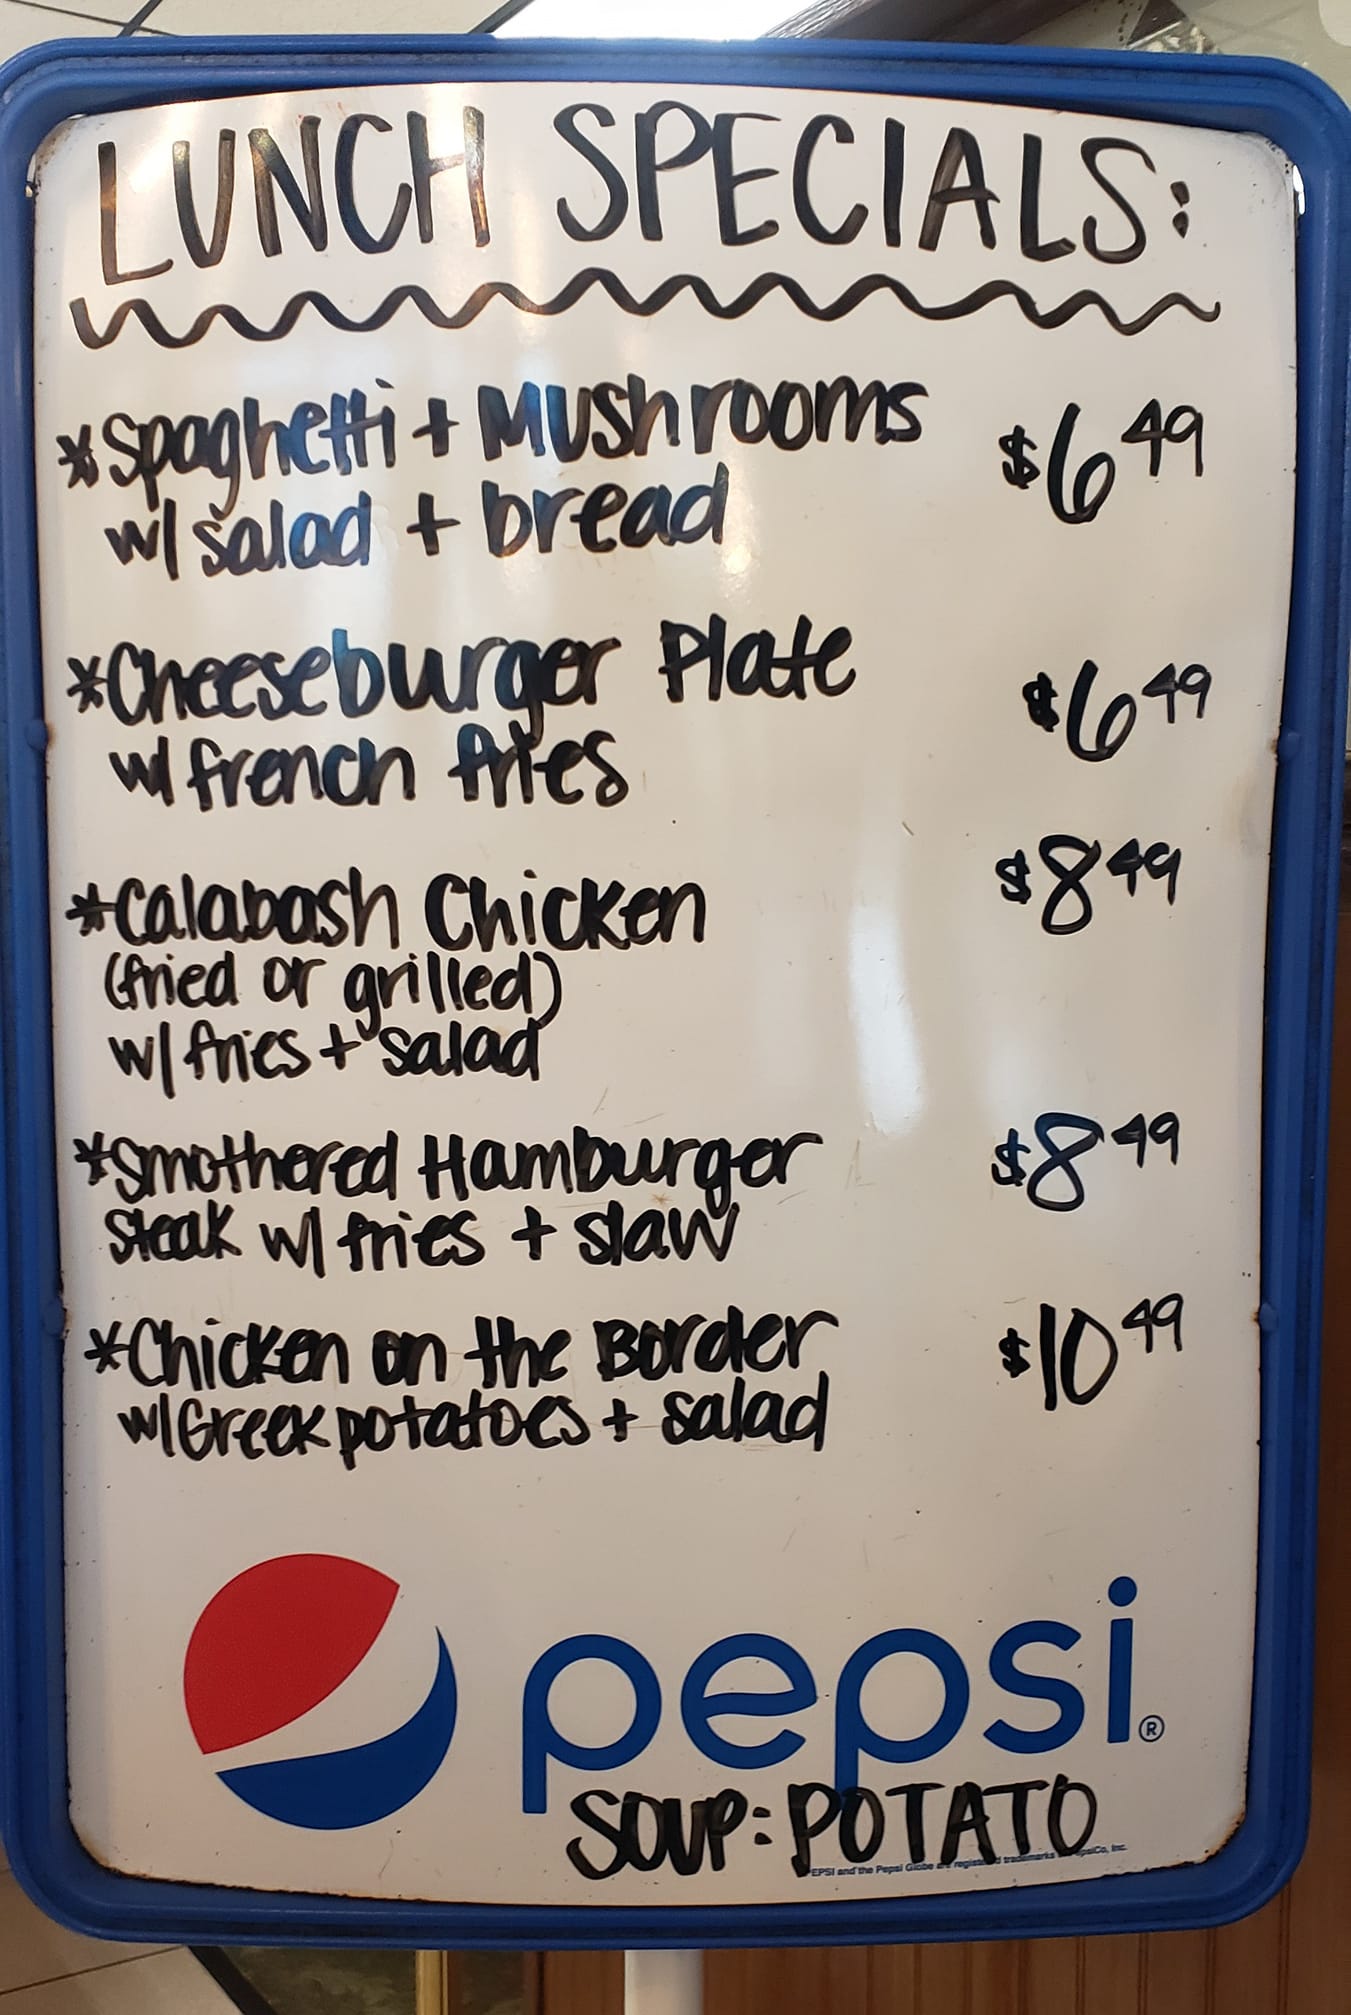 LUNCH SPECIALS:
*Spaghetti + Mushrooms $6 49
w/ salad + bread
*Cheeseburger Plate $6 49
w/ french fries
*Calabash Chicken $8 49
(fried or grilled)
w/ fries + salad
*Smothered Hamburger $8 49
Steak w/ fries + slaw
*Chicken on the Border $10 49
w/ Greek potatoes + salad
pepsi®
SOUP: POTATO
PEPSI and the Pepsi Globe are registered trademarks PepsiCo, Inc.